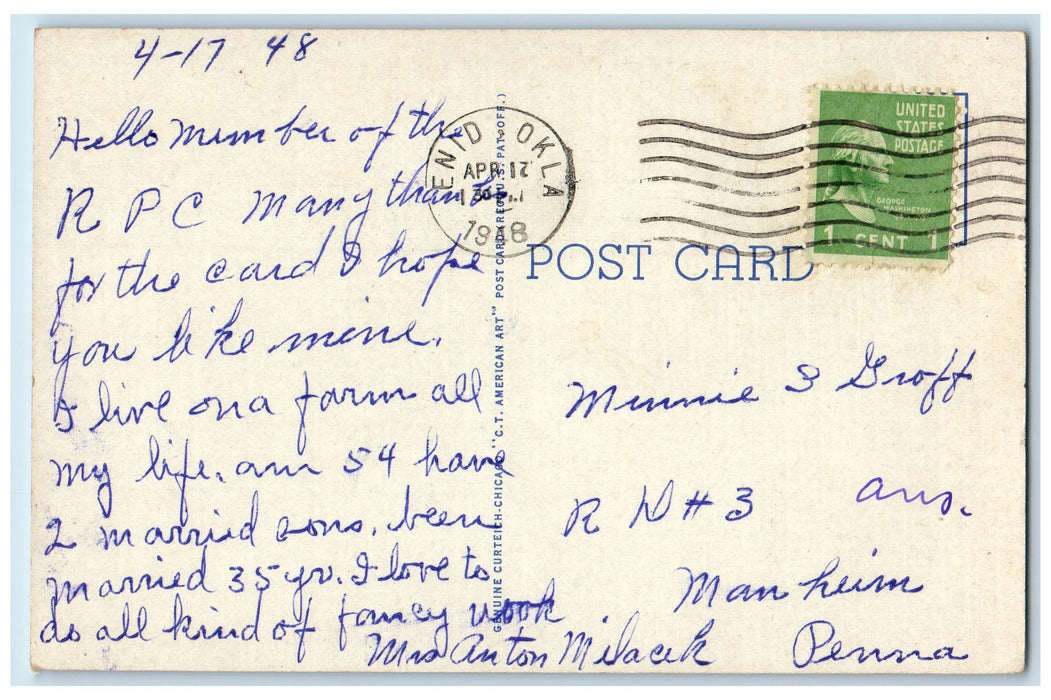 4-17 48
Hello Mumber of the
R P C Many thanks
for the card I hope
you like mine.
I live on a farm all
my life. am 54 have
2 married sons, been
married 35 yr. I love to
do all kind of fancy work
Mrs Anton Milacek
GENUINE CURTEICH-CHICAGO "C.T. AMERICAN ART" POST CARD (REG. U.S. PAT. OFF.)
ENID OKLA
APR 17
1948
UNITED
STATES
POSTAGE
GEORGE
WASHINGTON
1 CENT 1
POST CARD
Minnie S Groff
R D # 3
ans.
Manheim
Penna